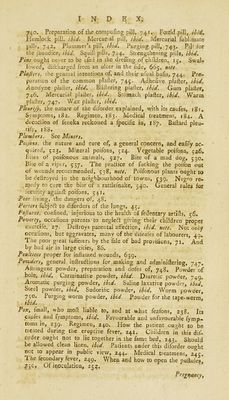 INDEX.
740. Preparation of the composing pill, 741. Fœtid pill, ibid.
Hemlock pill, ibid. Mercurial pill, ibid. Mercurial sublimate
pill, 742. Plummer's pill, ibid. Purging pill, 743. Pill for
the jaundice, ibid. Squill pill, 744. Strengthening pills, ibid.
Pins ought never to be used in the dressing of children, 13. Swal-
lowed, discharged from an ulcer in the side, 665, note.
Plasters, the general intentions of, and their usual basis, 744. Pre-
paration of the common plaster, 745. Adhesive plaster, ibid.
Anodyne plaster, ibid. Blistering plaster, ibid. Gum plaster,
746. Mercurial plaster, ibid. Stomach plaster, ibid. Warm
plaster, 747. Wax plaster, ibid.
Pleurisy, the nature of the disorder explained, with its causes, 181.
Symptoms, 182. Regimen, 183. Medical treatment, 184. A
decoction of seneka reckoned a specific in, 187. Bastard pleu-
risy, 188.
Plumbers. See Miners.
Poisons, the nature and cure of, a general concern, and easily ac-
quired, 523. Mineral poisons, 524. Vegetable poisons, 526.
Bites of poisonous animals, 527. Bite of a mad dog, 530.
Bite of a viper, 537. The practice of sucking the poison out
of wounds recommended, 538, note. Poisonous plants ought to
be destroyed in the neighbourhood of towns, 539. Negro re-
medy to cure the bite of a rattlesnake, 540. General rules for
security against poisons, 541.
Poor living, the dangers of, 38.
Porters subject to disorders of the lungs, 45.
Postures, confined, injurious to the health of sedentary artists, 56.
Poverty, occasions parents to neglect giving their children proper
exercise, 27. Destroys parental affection, ibid. note. Not only
occasions, but aggravates, many of the diseases of labourers, 49.
The poor great sufferers by the sale of bad provisions, 71. And
by bad air in large cities, 86.
Poultices proper for inflamed wounds, 639.
Powders, general instructions for making and administering, 747.
Astringent powder, preparation and doses of, 748. Powder of
bole, ibid. Carminative powder, ibid. Diuretic powder, 749.
Aromatic purging powder, ibid. Saline laxative powder, ibid.
Steel powder, ibid. Sudorific powder, ibid. Worm powder,
750. Purging worm powder, ibid. Powder for the tape-worm,
ibid.
Pox, small, who most liable to, and at what seasons, 238. Its
causes and symptoms, ibid. Favourable and unfavourable symp-
toms in, 239. Regimen, 240. How the patient ought to be
treated during the eruptive fever, 241. Children in this dis-
order ought not to lie together in the same bed, 243. Should
be allowed clean linen, ibid. Patients under this disorder ought
not to appear in public view, 244. Medical treatment, 245.
The secondary fever, 249. When and how to open the pustules,
250. Of inoculation, 252.
Pregnancy,